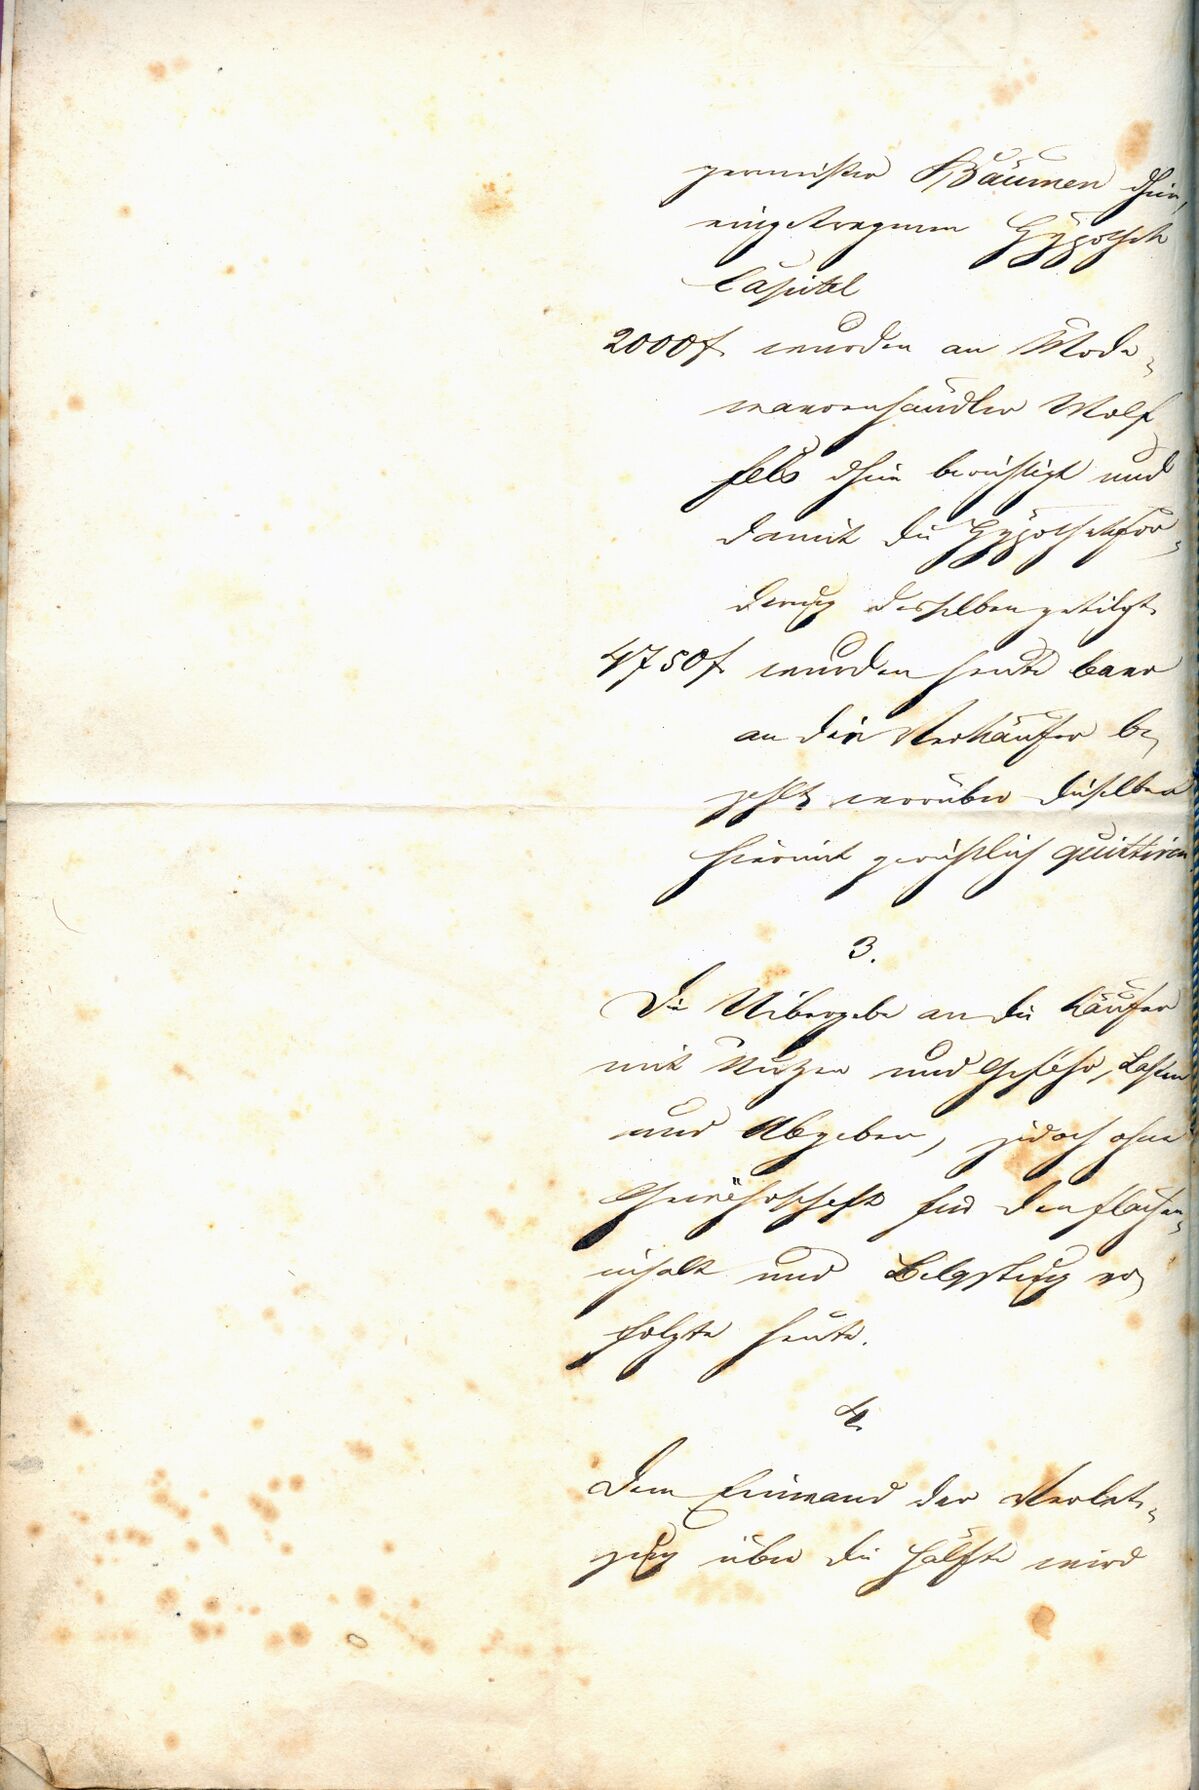 germeister Bäumen dhier,
eingetragenen Hypothek
Capital
2000f. wurden an Mode-
waarenhändler Wolf
fels dhier berichtigt und
damit die Hypothekfor-
derung desselben getilgt.
4750f. wurden heute baar
an die Verkäufer be-
zahlt, worüber dieselben
hiermit gerichtlich quittiren
3.
Die Uibergabe an die Käufer
mit Nutzen und Gefahr, Lasten
und Abgaben, jedoch ohne
Gewährschaft für den Flächen-
inhalt und Belastung er-
folgte heute.
4.
Dem Einwand der Verlet-
zung über die Hälfte wird